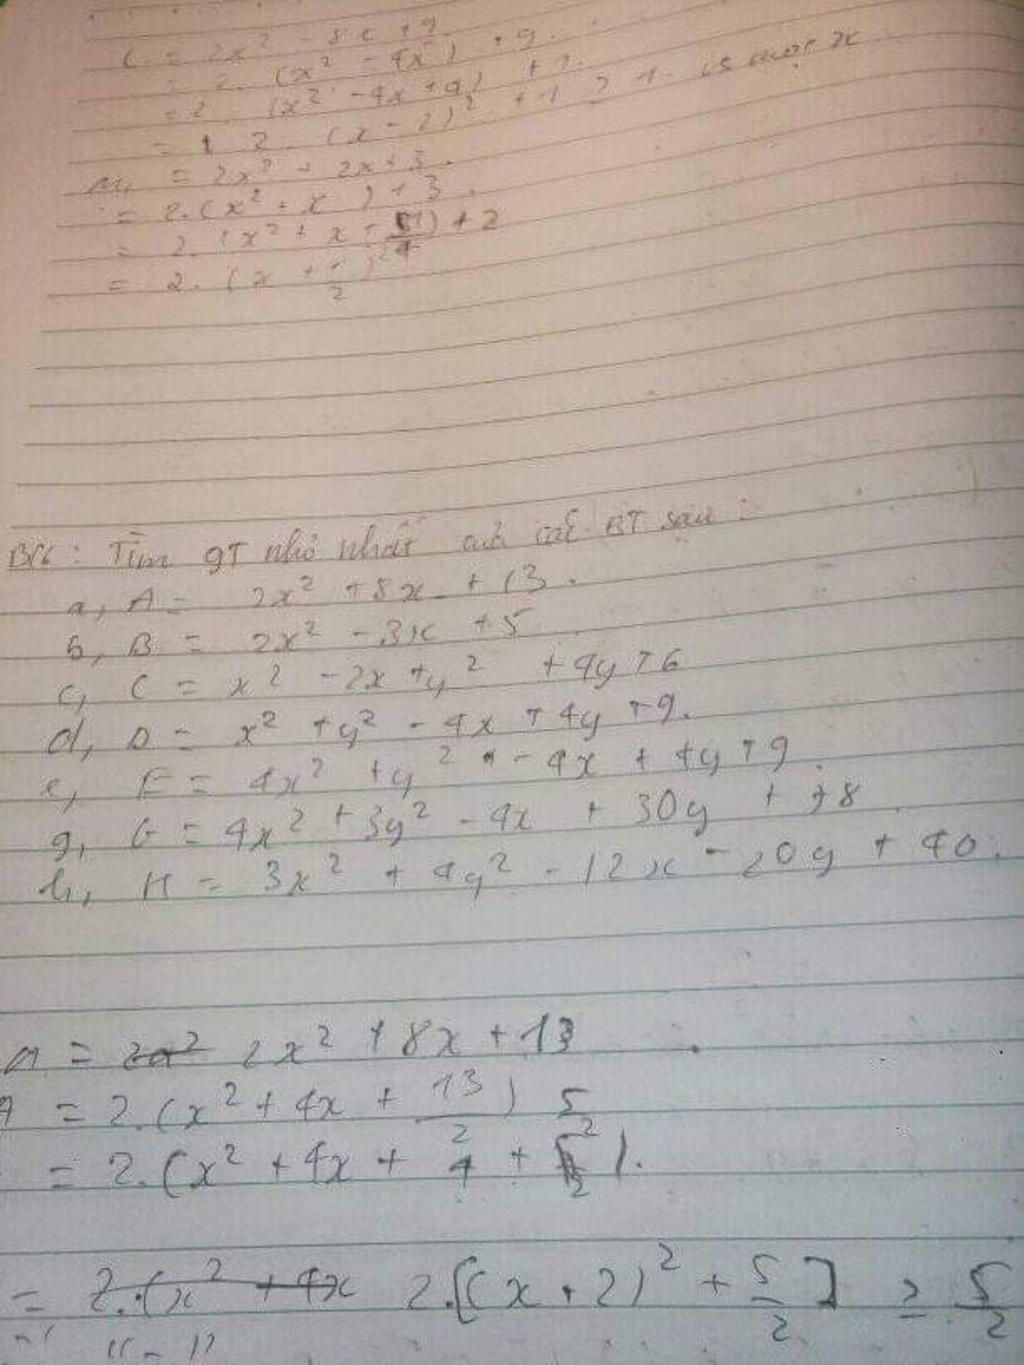 C = 2x² - 8x + 9
= 2. (x² - 4x) + 9.
= 2 (x² - 4x + 4) + 1.
= 2. (x - 2)² + 1 ≥ 1
M = 2x² + 2x + 3.
= 2.(x² + x ) + 3.
= 2. (x² + x +
= 2. (x + 1/2)²
Bài 6: Tìm GT nhỏ nhất của các BT sau :
a, A = 2x² + 8x + 13.
b, B = 2x² - 3x + 5
c, C = x² - 2x + y² + 4y + 6
d, D = x² + y² - 4x + 4y + 9.
e, E = 4x² + y² - 4x + 4y + 9.
g, G = 4x² + 3y² - 4x + 30y + 78
h, H = 3x² + 4y² - 12x - 20y + 40.
A = 2x² + 8x + 13
= 2.(x² + 4x + 13/2)
= 2.(x² + 4x + 4 + 5/2).
= 2.[(x + 2)² + 5/2] ≥ 5/2